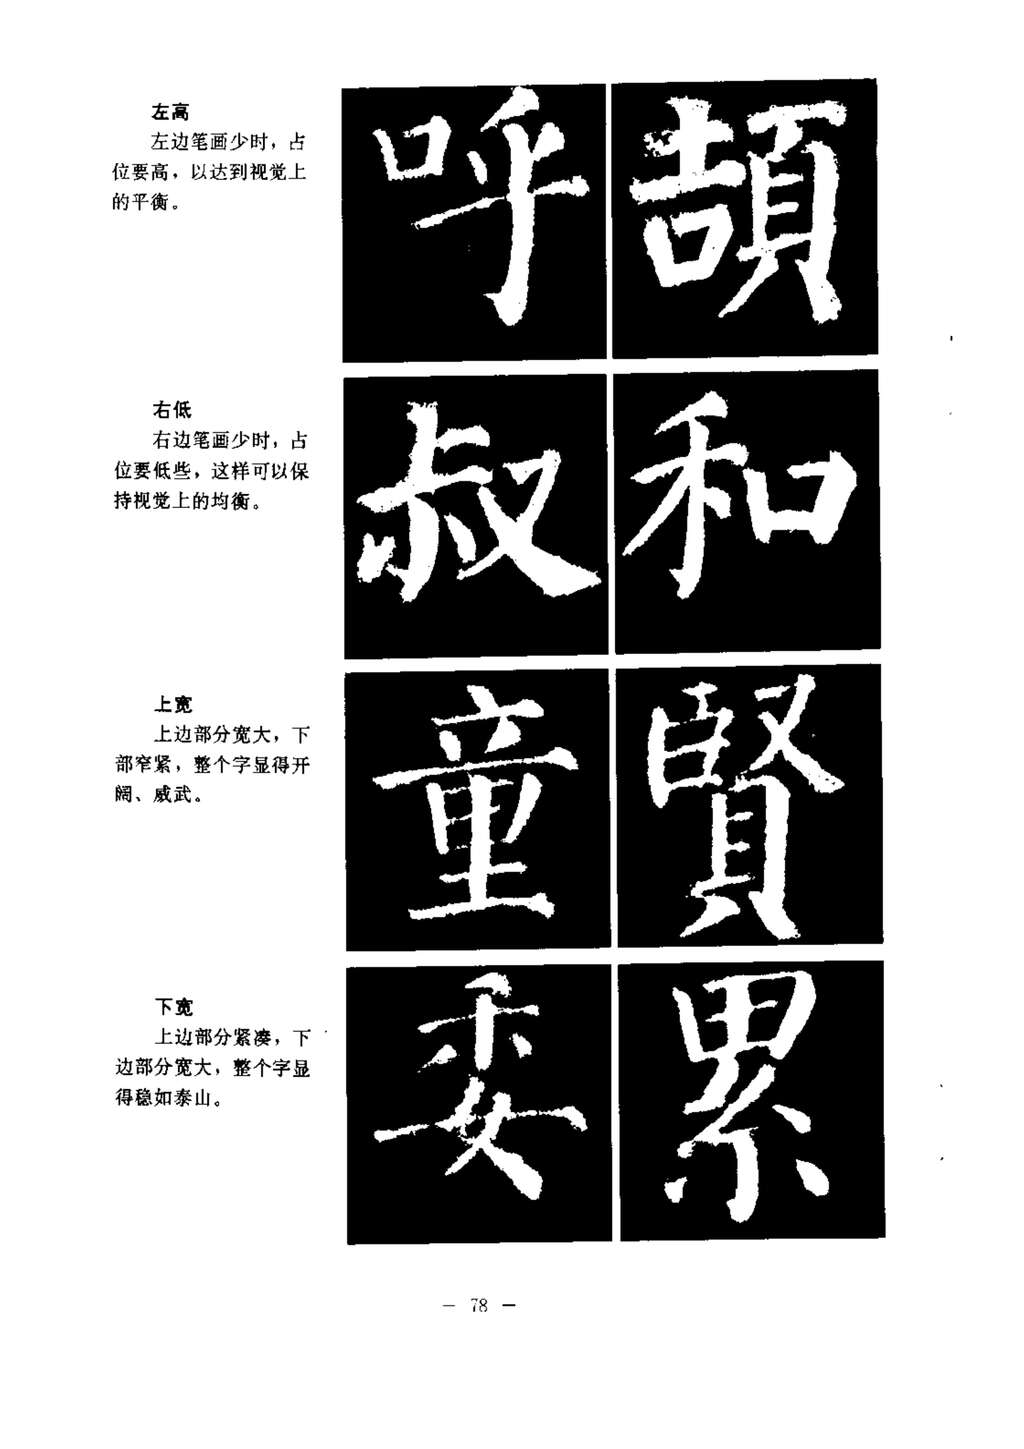 左高
左边笔画少时，占
位要高，以达到视觉上
的平衡。
呼 頡
右低
右边笔画少时，占
位要低些，这样可以保
持视觉上的均衡。
叔 和
上宽
上边部分宽大，下
部窄紧，整个字显得开
阔、威武。
童 賢
下宽
上边部分紧凑，下
边部分宽大，整个字显
得稳如泰山。
委 累
— 78 —